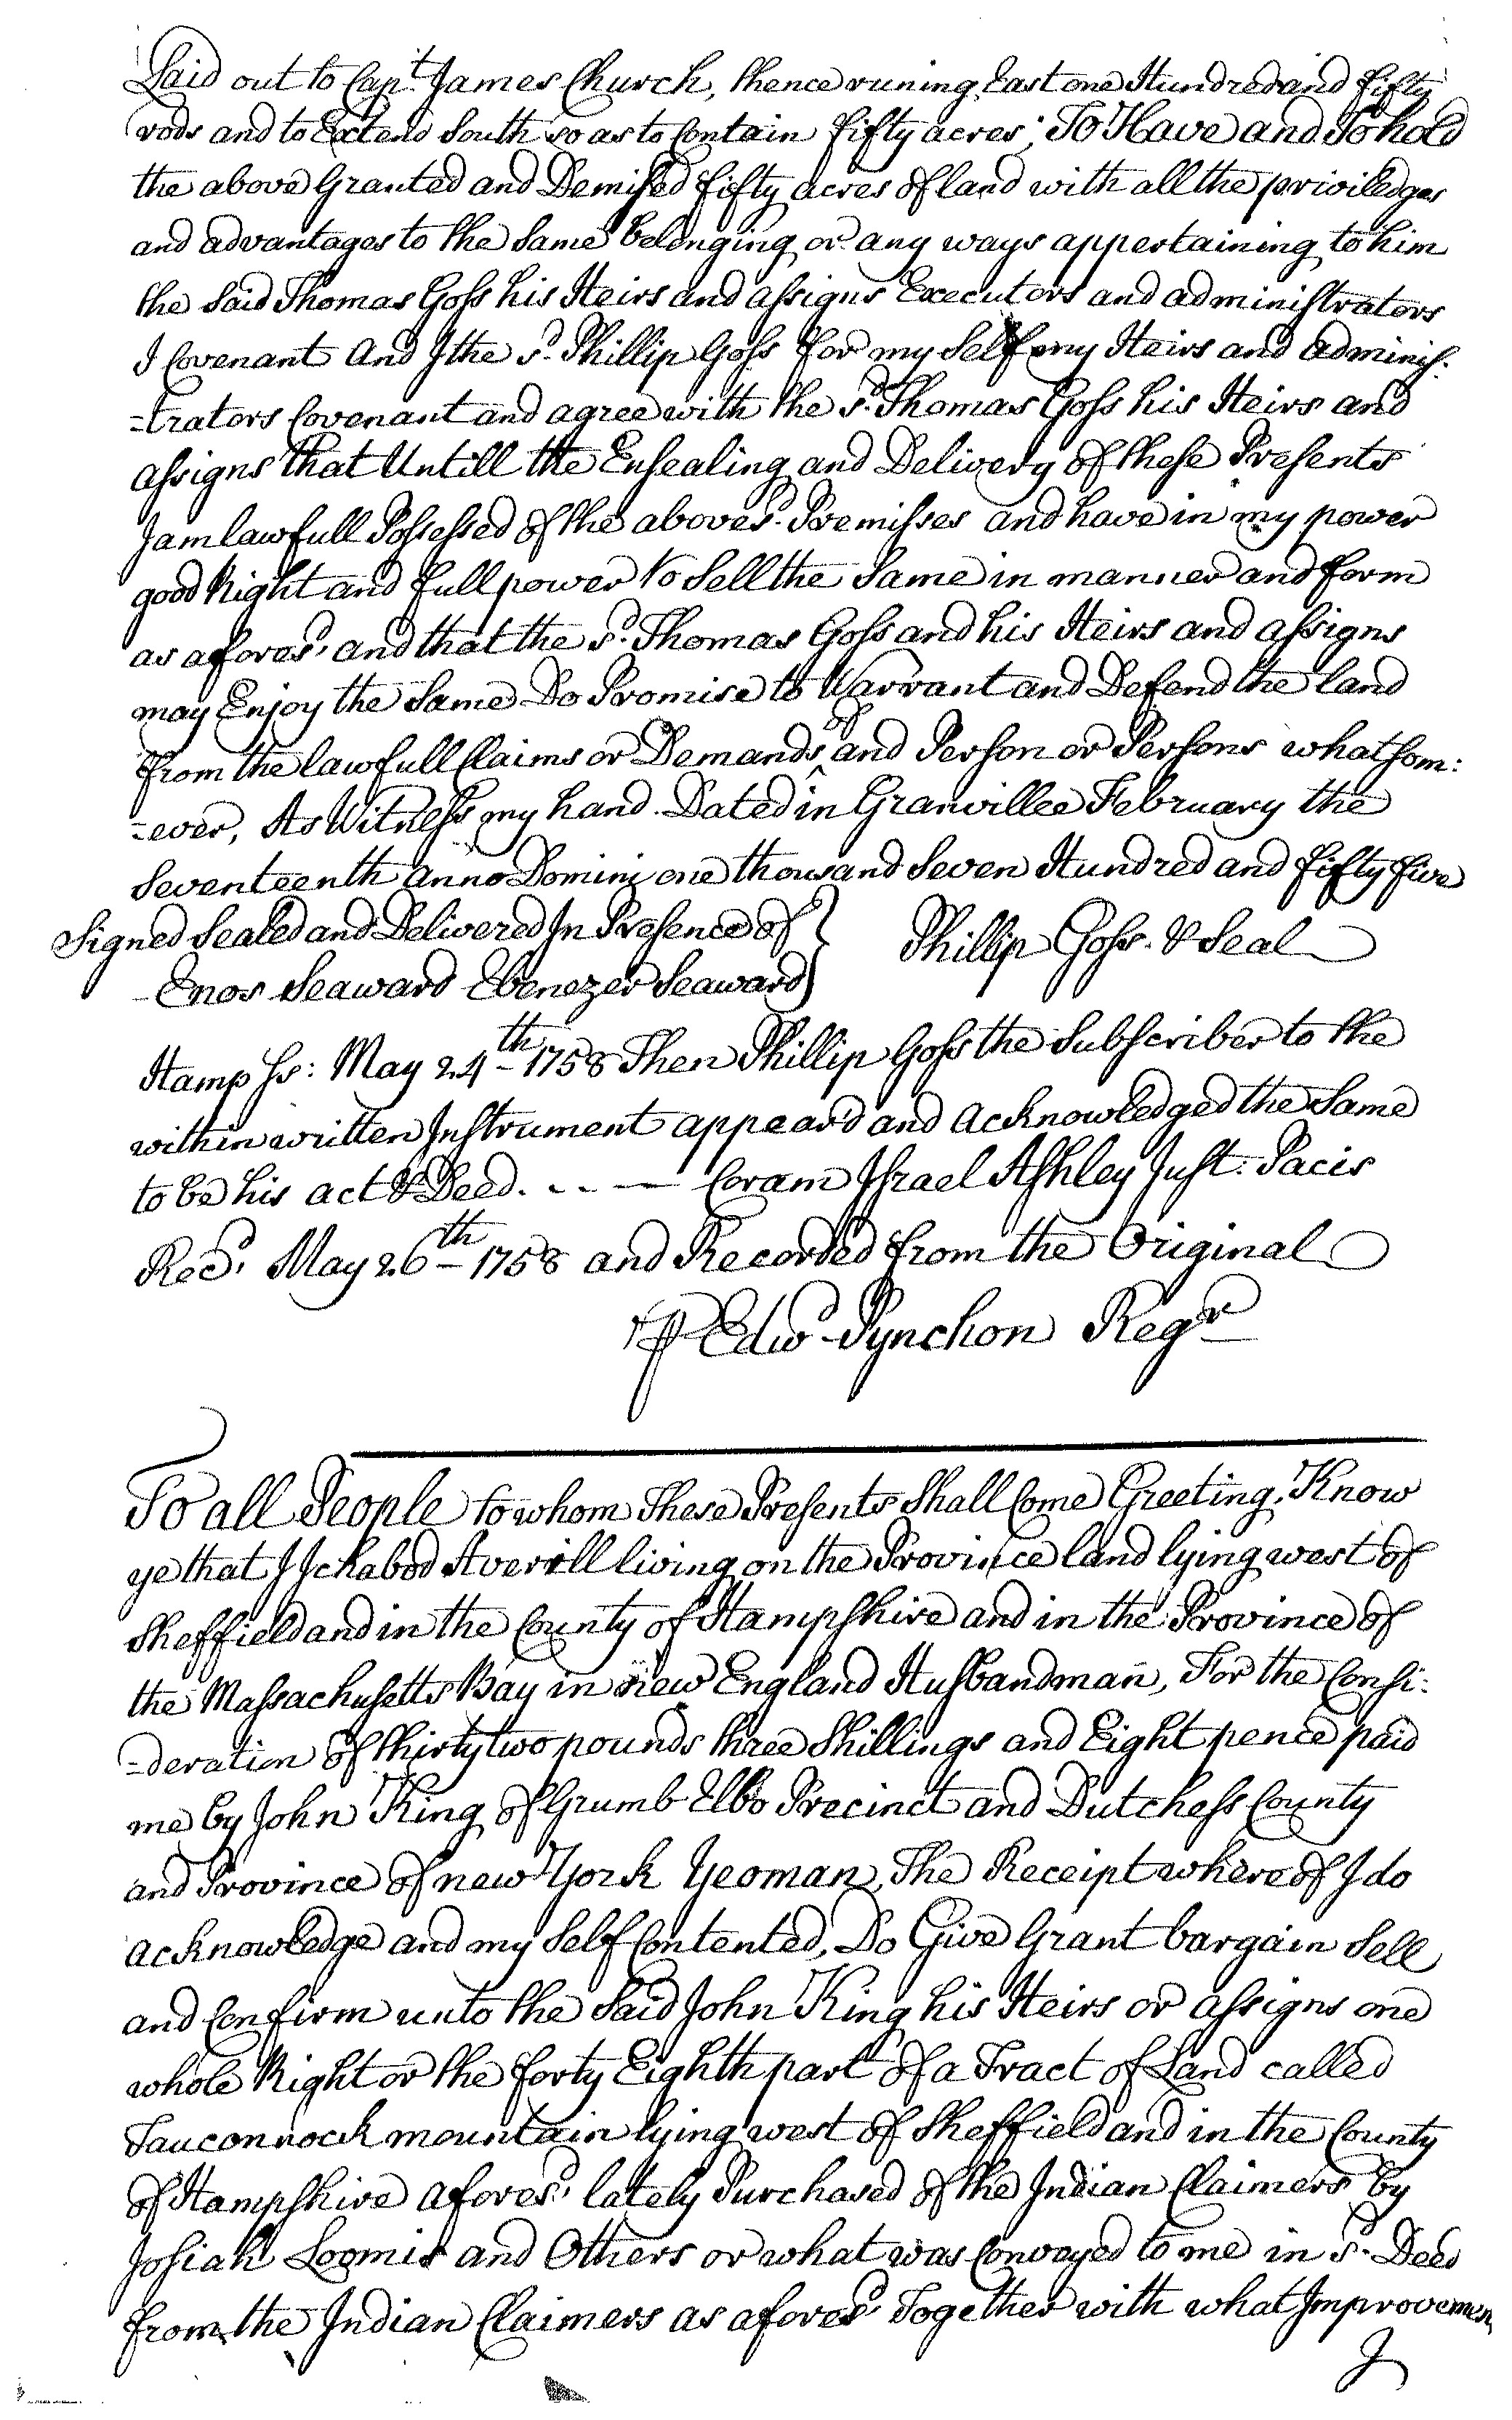 Laid out to Capt. James Church, thence runing East one Hundred and Fifty
rods and to Extend South so as to Contain fifty acres; To Have and To hold
the above Granted and Demised fifty acres of land with all the priviledges
and advantages to the Same belonging or any ways appertaining to him
the Said Thomas Goss his Heirs and assigns Executors and administrators
I Covenant And I the sd. Phillip Goss for my Self my Heirs and adminis:
=trators Covenant and agree with the sd. Thomas Goss his Heirs and
assigns that Untill the Ensealing and Delivery of these Presents
I am lawfull Possessed of the abovesd. Premisses and have in my power
good Right and full power to Sell the Same in manner and form
as aforesd. and that the sd. Thomas Goss and his Heirs and assigns
may Enjoy the Same Do Promise to Warrant and Defend the land
from the lawfull Claims or Demands of and Person or Persons whatsom:
=ever, As Witness my hand Dated in Granvillee February the
Seventeenth anno Domini one thousand Seven Hundred and fifty five
Signed Sealed and Delivered In Presence of } Phillip Goss. & Seal
- Enos Seaward Ebenezer Seaward
Hamp Ss: May 24th - 1758 Then Phillip Goss the Subscriber to the
within written Instrument appear'd and acknowledged the Same
to be his act & Deed. - - — Coram Israel Ashley Just. Pacis
Recd. May 26th - 1758 and Recorded from the Original
Edwd Pynchon Regr
To all People to whom These Presents Shall Come Greeting, Know
ye that I Ichabod Averill living on the Province land lying west of
Sheffield and in the County of Hampshire and in the Province of
the Massachusetts Bay in new England Husbandman, For the Consi:
=deration of thirty two pounds three Shillings and Eight pence paid
me by John King of Grumb Elbo Precinct and Dutchess County
and Province of new York Yeoman, The Receipt where of I do
acknowledge and my Self Contented, Do Give Grant bargain Sell
and Confirm unto the Said John King his Heirs or assigns one
whole Right or the forty Eighth part of a Tract of Land called
Tauconnock mountain lying west of Sheffield and in the County
of Hampshire aforesd. lately Purchased of the Indian Claimers by
Josiah Loomis and Others or what was Conveyed to me in sd. Deed
from the Indian Claimers as aforesd. Together with what Improvemen
I